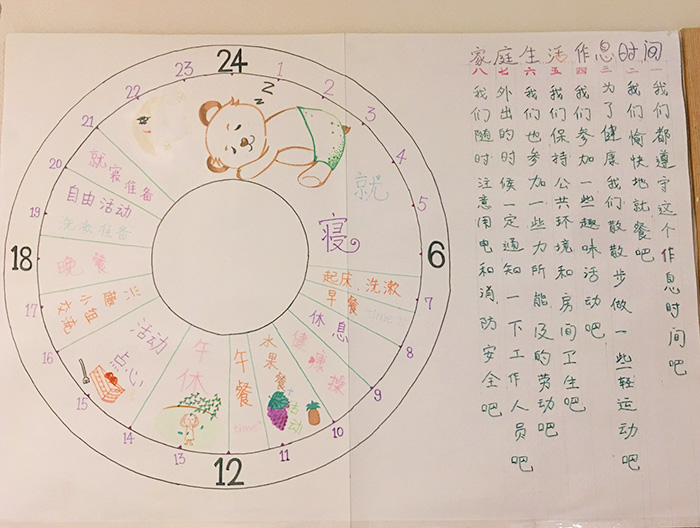 家庭生活作息时间
一我们都遵守这个作息时间吧
二我们愉快地就餐吧
三为了健康我们散散步做一些轻运动吧
四我们参加一些趣味活动吧
五我们保持公共环境和房间卫生吧
六我们也参加一些力所能及的劳动吧
七外出的时候一定通知一下工作人员吧
八我们随时注意用电和消防安全吧
24
1
2
3
4
5
6
7
8
9
10
11
12
13
14
15
16
17
18
19
20
21
22
23
zzz
就寝
起床、洗漱
早餐
time
休息
健康操
水果餐
午餐
time
午休
点心
活动
兴趣小组
晚餐
洗漱准备
自由活动
就寝准备